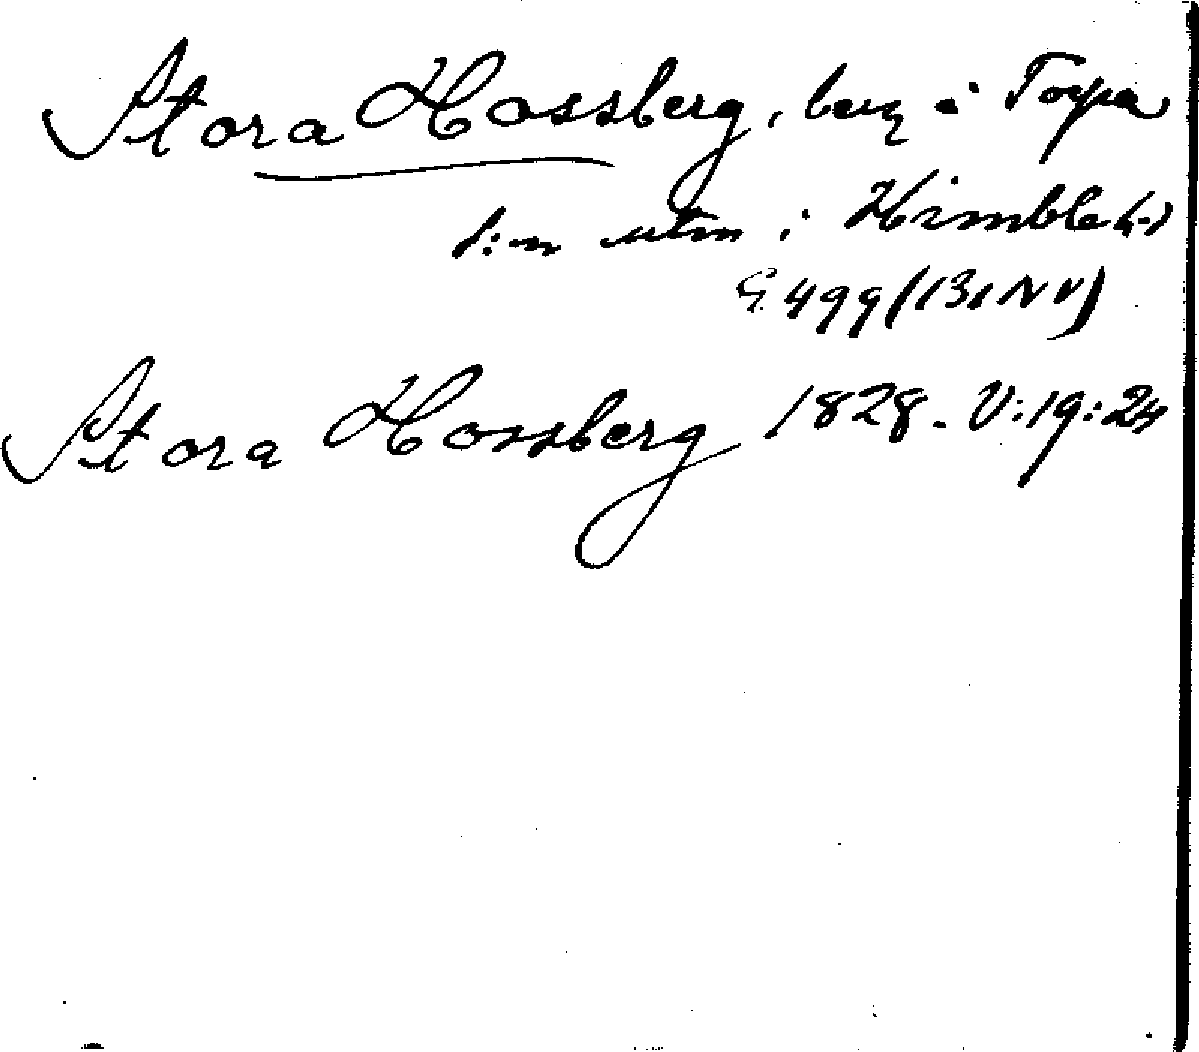 Stora Hossberg, berg i Torpa
s:n utm i Himble h.
G. 499 (131 NV)
Stora Hossberg 1828. V:19:24